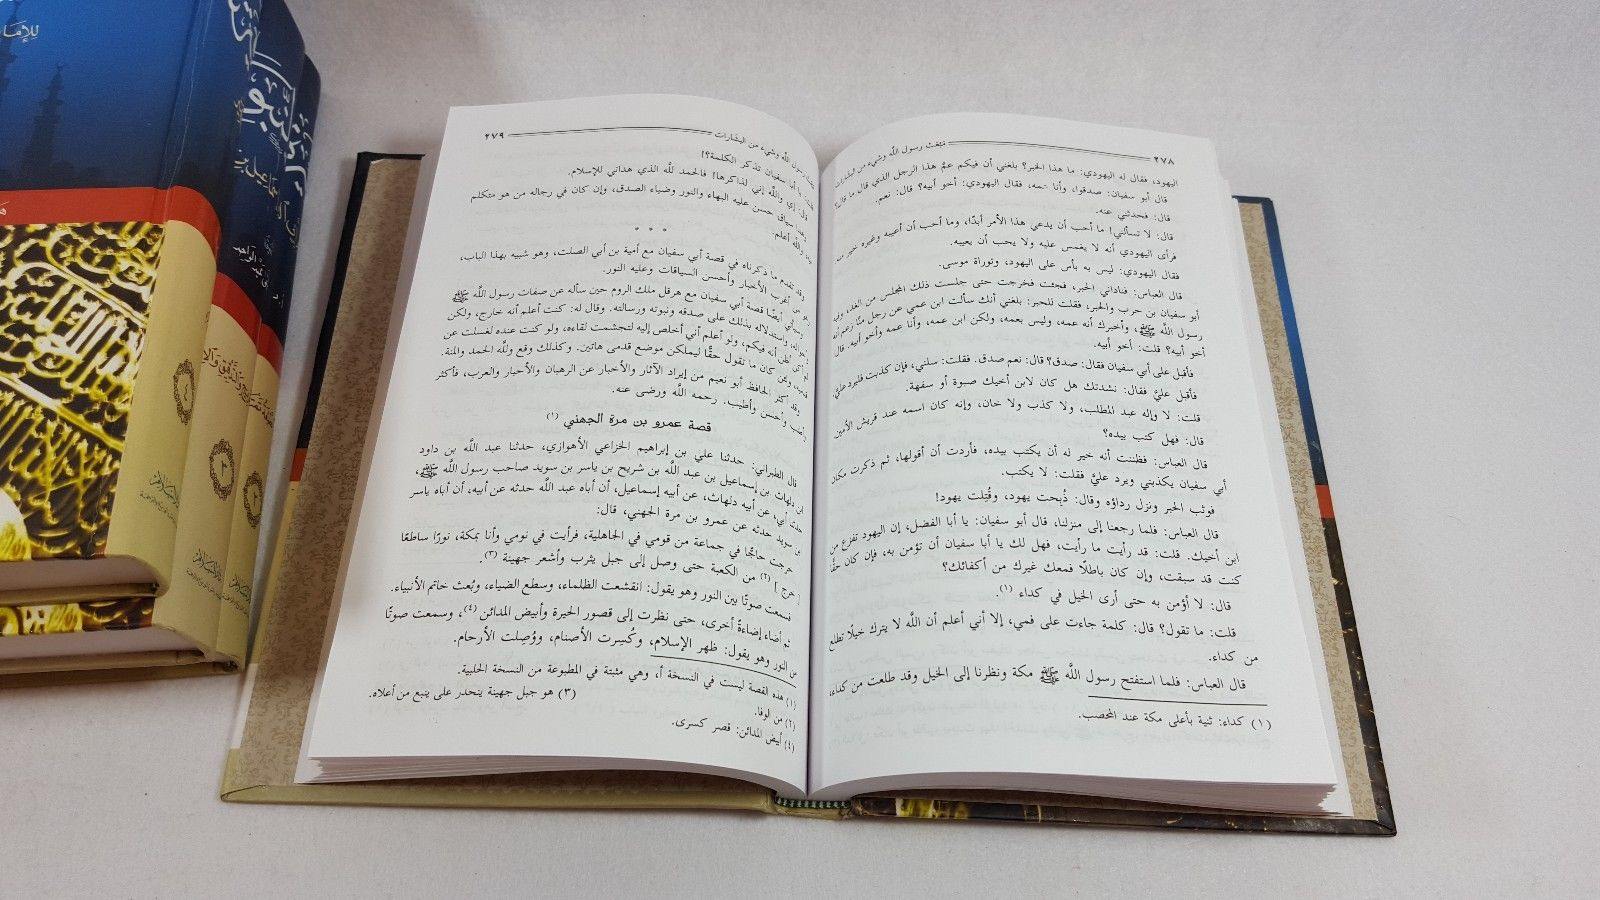 ٢٧٨ مَبْعَث رسول اللَّه وشيء من البشارات
اليهود، فقال له اليهودي: ما هذا الخبر؟ بلغني أن فيكم عمُّ هذا الرجل الذي قال ما قال؟
قال أبو سفيان: صدقوا، وأنا عمه، فقال اليهودي: أخو أبيه؟ قال: نعم.
قال: فحدثني عنه.
قال: لا تسألني! ما أحب أن يدعي هذا الأمر أبدًا، وما أحب أن أعيبه وغيره خير منه
فرأى اليهودي أنه لا يغمس عليه ولا يحب أن يعيبه.
فقال اليهودي: ليس به بأس على اليهود، وتوراة موسى.
قال العباس: فناداني الحبر، فجئت فخرجت حتى جلست ذلك المجلس من الغد، وفيه
أبو سفيان بن حرب والحبر، فقلت للحبر: بلغني أنك سألت ابن عمي عن رجل منَّا زعم أنه
رسول اللَّه ﷺ، وأخبرك أنه عمه، وليس بعمه، ولكن ابن عمه، وأنا عمه وأخو أبيه. قال
أخو أبيه؟ قلت: أخو أبيه.
فأقبل على أبي سفيان فقال: صدق؟ قال: نعم صدق. فقلت: سلني، فإن كذبت فليرد عليَّ
فأقبل عليَّ فقال: نشدتك هل كان لابن أخيك صبوة أو سفهة.
قلت: لا وإله عبد المطلب، ولا كذب ولا خان، وإنه كان اسمه عند قريش الأمين
قال: فهل كتب بيده؟
قال العباس: فظننت أنه خير له أن يكتب بيده، فأردت أن أقولها، ثم ذكرت مكان
أبي سفيان يكذبني ويرد عليَّ فقلت: لا يكتب.
فوثب الحبر ونزل رداؤه وقال: ذُبحت يهود، وقُتِلت يهود!
قال العباس: فلما رجعنا إلى منزلنا، قال أبو سفيان: يا أبا الفضل، إن اليهود تفزع من
ابن أخيك. قلت: قد رأيت ما رأيت، فهل لك يا أبا سفيان أن تؤمن به، فإن كان حقًا
كنت قد سبقت، وإن كان باطلًا فمعك غيرك من أكفائك؟
قال: لا أؤمن به حتى أرى الخيل في كداء (١).
قلت: ما تقول؟ قال: كلمة جاءت على فمي، إلا أني أعلم أن اللَّه لا يترك خيلًا تطلع
من كداء.
قال العباس: فلما استفتح رسول اللَّه ﷺ مكة ونظرنا إلى الخيل وقد طلعت من كداء،
(١) كداء: ثنية بأعلى مكة عند المحصب.
رسول اللَّه وشيء من البشارات ٢٧٩
قلت: يا أبا سفيان تذكر الكلمة؟!
قال: إي واللَّه إني لذاكرها! فالحمد للَّه الذي هداني للإسلام.
سياق حسن عليه البهاء والنور وضياء الصدق، وإن كان في رجاله من هو متكلم
واللَّه أعلم.
* * *
وقد تقدم ما ذكرناه في قصة أبي سفيان مع أمية بن أبي الصلت، وهو شبيه بهذا الباب،
من أغرب الأخبار وأحسن السياقات وعليه النور.
وسيأتي أيضًا قصة أبي سفيان مع هرقل ملك الروم حين سأله عن صفات رسول اللَّه ﷺ
واستدلاله بذلك على صدقه ونبوته ورسالته. وقال له: كنت أعلم أنه خارج، ولكن
أظن أنه فيكم، ولو أعلم أني أخلص إليه لتجشمت لقاءه، ولو كنت عنده لغسلت عن
كان ما تقول حقًّا ليملكن موضع قدمي هاتين. وكذلك وقع وللَّه الحمد والمنة.
وقد أكثر الحافظ أبو نعيم من إيراد الآثار والأخبار عن الرهبان والأحبار والعرب، فأكثر
وأحسن وأطيب. رحمه اللَّه ورضى عنه.
قصة عمرو بن مرة الجهني (١)
قال الطبراني: حدثنا علي بن إبراهيم الخزاعي الأهوازي، حدثنا عبد اللَّه بن داود
ابن دلهاث بن إسماعيل بن عبد اللَّه بن شريح بن ياسر بن سويد صاحب رسول اللَّه ﷺ،
حدثنا أبي، عن أبيه دلهاث، عن أبيه إسماعيل، أن أباه عبد اللَّه حدثه عن أبيه، أن أباه ياسر
بن سويد حدثه عن عمرو بن مرة الجهني، قال:
خرجت حاجًّا في جماعة من قومي في الجاهلية، فرأيت في نومي وأنا بمكة، نورًا ساطعًا
[ خرج ] (٢) من الكعبة حتى وصل إلى جبل يثرب وأشعر جهينة (٣).
فسمعت صوتًا بين النور وهو يقول: انقشعت الظلماء، وسطع الضياء، وبُعث خاتم الأنبياء.
ثم أضاء إضاءةً أخرى، حتى نظرت إلى قصور الحيرة وأبيض المدائن (٤)، وسمعت صوتًا
من النور وهو يقول: ظهر الإسلام، وكُسِرت الأصنام، ووُصِلت الأرحام.
(١) هذه القصة ليست في النسخة أ، وهي مثبتة في المطبوعة من النسخة الحلبية.
(٢) من الوفا. (٣) هو جبل جهينة ينحدر على ينبع من أعلاه.
(٤) أبيض المدائن: قصر كسرى.